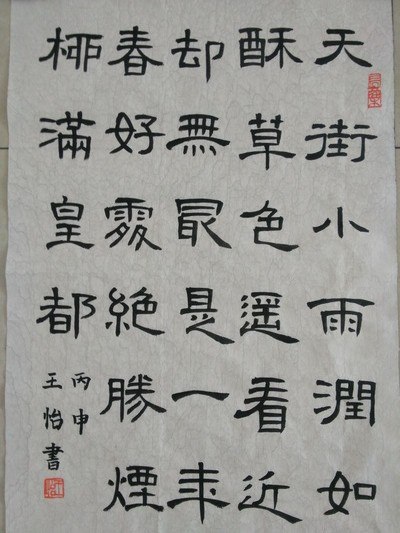 天街小雨潤如
酥草色遥看近
却無最是一年
春好處絶勝煙
柳滿皇都
丙申
王怡書